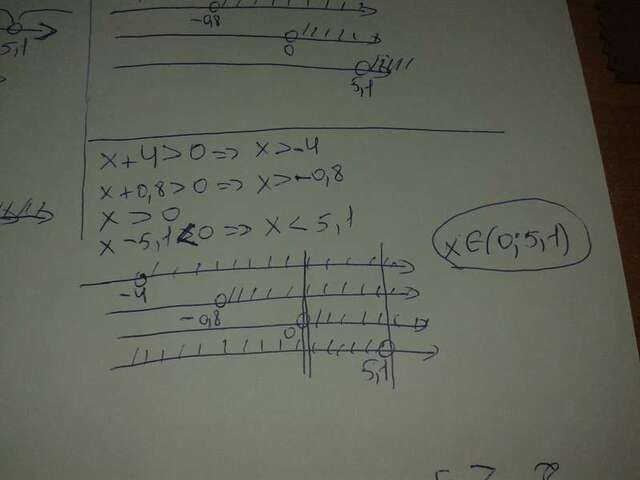 -0,8
0
5,1
5,1
x+4>0=> x>-4
x+0,8>0=> x>-0,8
x>0
x-5,1<0=> x<5,1
x∈(0;5,1)
-4
-0,8
0
5,1